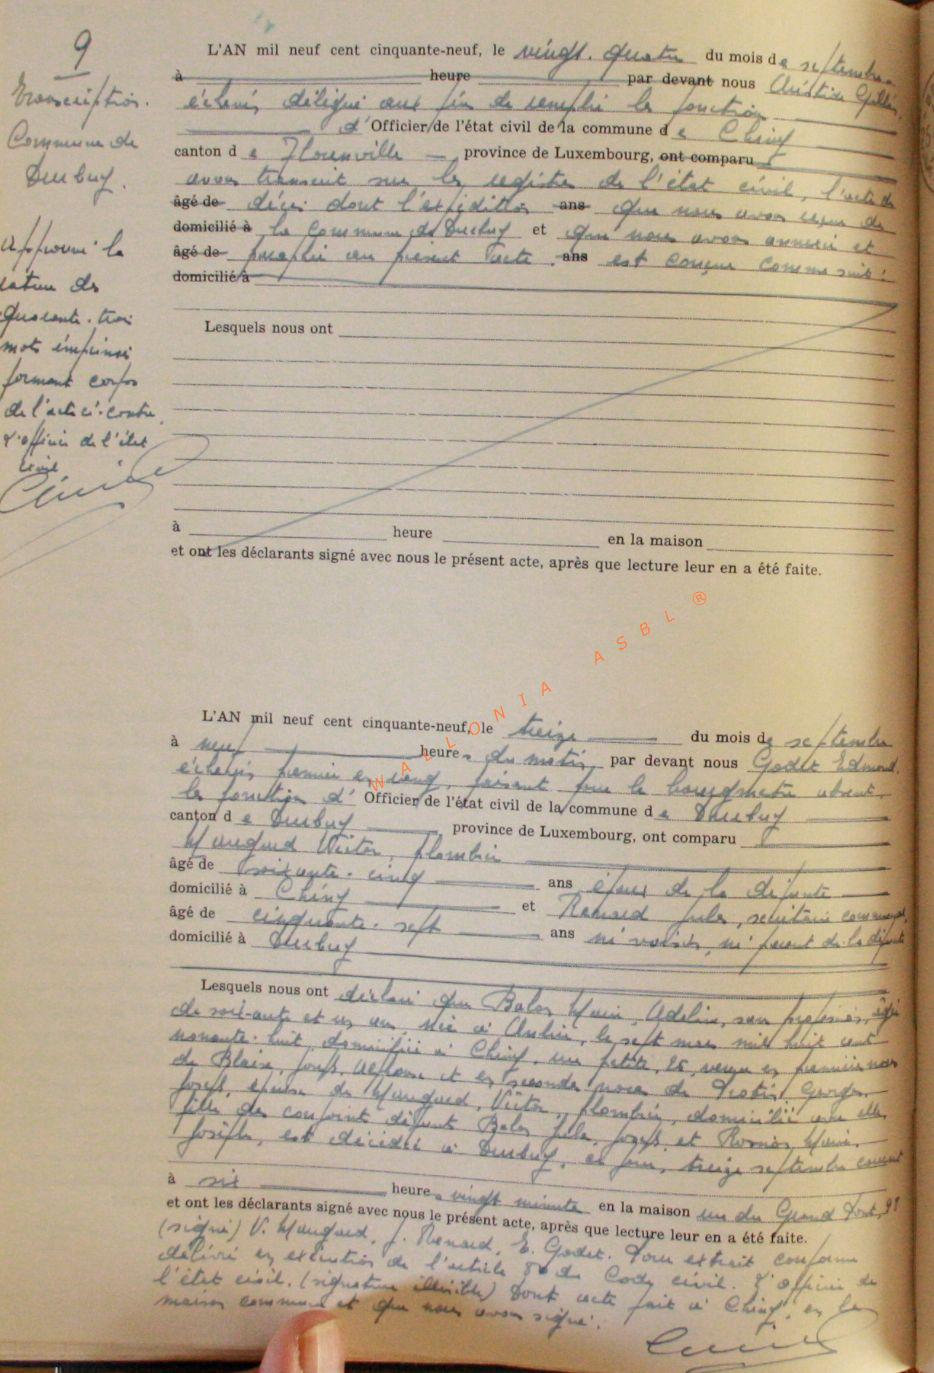 9
Transcription.
Commune de
Durbuy.
Approuvé la
rature de
quarante-trois
mots imprimés
formant corps
de l'acte ci-contre.
L'officier de l'état
civil
L'AN mil neuf cent cinquante-neuf, le vingt-quatre du mois de septembre
à heure par devant nous
échevin délégué aux fins de remplir la fonction
d'Officier de l'état civil de la commune de Chiny
canton de Florenville, province de Luxembourg, ont comparu
avons transcrit sur les registres de l'état civil, l'acte de
âgé de décès dont l'expédition ans que nous avons reçue de
domicilié à la commune de Durbuy et que nous avons annexée et
âgé de paraphée au présent acte. ans est conçue comme suit:
domicilié à
Lesquels nous ont
à heure en la maison
et ont les déclarants signé avec nous le présent acte, après que lecture leur en a été faite.
WALLONIA ASBL ®
L'AN mil neuf cent cinquante-neuf, le treize du mois de septembre
à neuf heures du matin, par devant nous Godet Edmond,
échevin premier en rang, faisant pour le bourgmestre absent,
les fonctions d'Officier de l'état civil de la commune de Durbuy
canton de Durbuy, province de Luxembourg, ont comparu
Victor, plombier
âgé de soixante-cinq ans époux de la défunte
domicilié à Chiny et Renard Jules, secrétaire communal,
âgé de cinquante-sept ans ni voisin, ni parent de la défunte
domicilié à Durbuy
Lesquels nous ont déclaré que Marie, Adeline, sans profession, âgée
de soixante et un ans, née à le sept mars mil huit cent
nonante-huit, domiciliée à Chiny, 25, veuve en premières noces
de Blaise, Joseph, Alphonse et en secondes noces de Georges
Joseph, épouse de Victor, plombier, domicilié avec elle,
fille des conjoints défunts Jules, Joseph et Marie,
est décédée à Durbuy, ce jour, treize septembre courant
à six heures vingt minutes en la maison rue du Grand Pont,
et ont les déclarants signé avec nous le présent acte, après que lecture leur en a été faite.
(signé) V. J. Renard, E. Godet. Pour extrait conforme
délivré en exécution de l'article 80 du Code civil. L'officier de
l'état civil. (signature illisible) Dont acte fait à Chiny, en la
maison communale et que nous avons signé.